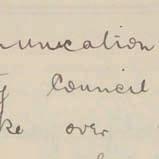 munication
y Council
ke over